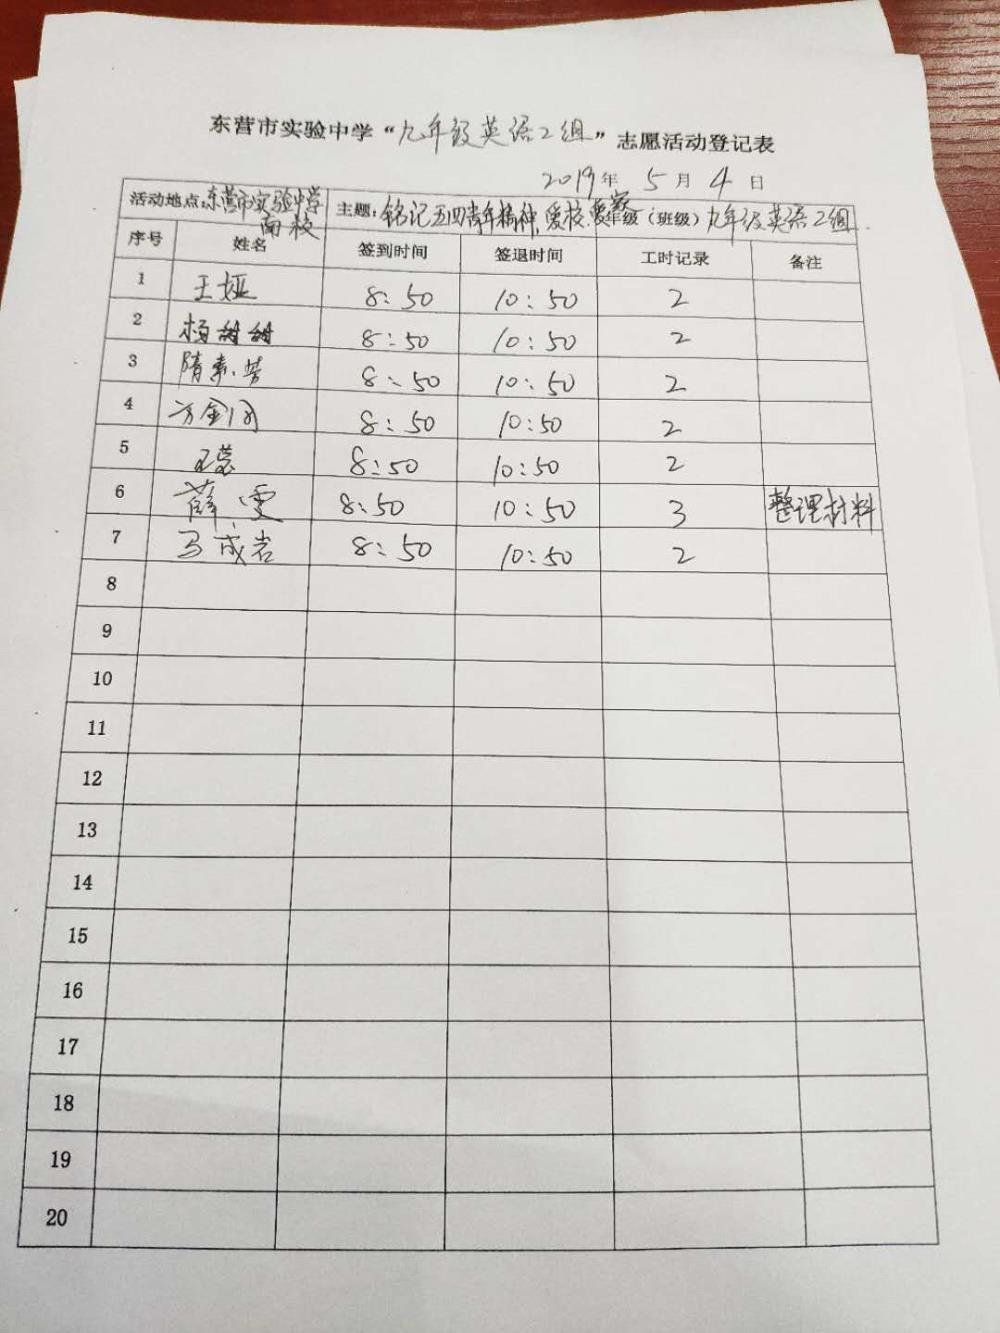 东营市实验中学“九年级英语2组”志愿活动登记表
2019年 5月 4日
活动地点:东营市实验中学南校 主题:铭记五四青年精神,爱校爱家 年级(班级)九年级英语2组
序号 姓名 签到时间 签退时间 工时记录 备注
1 王娅 8:50 10:50 2
2 杨甜甜 8:50 10:50 2
3 隋素芳 8:50 10:50 2
4 8:50 10:50 2
5 王蕊 8:50 10:50 2
6 薛雯 8:50 10:50 3 整理材料
7 马成岩 8:50 10:50 2
8
9
10
11
12
13
14
15
16
17
18
19
20